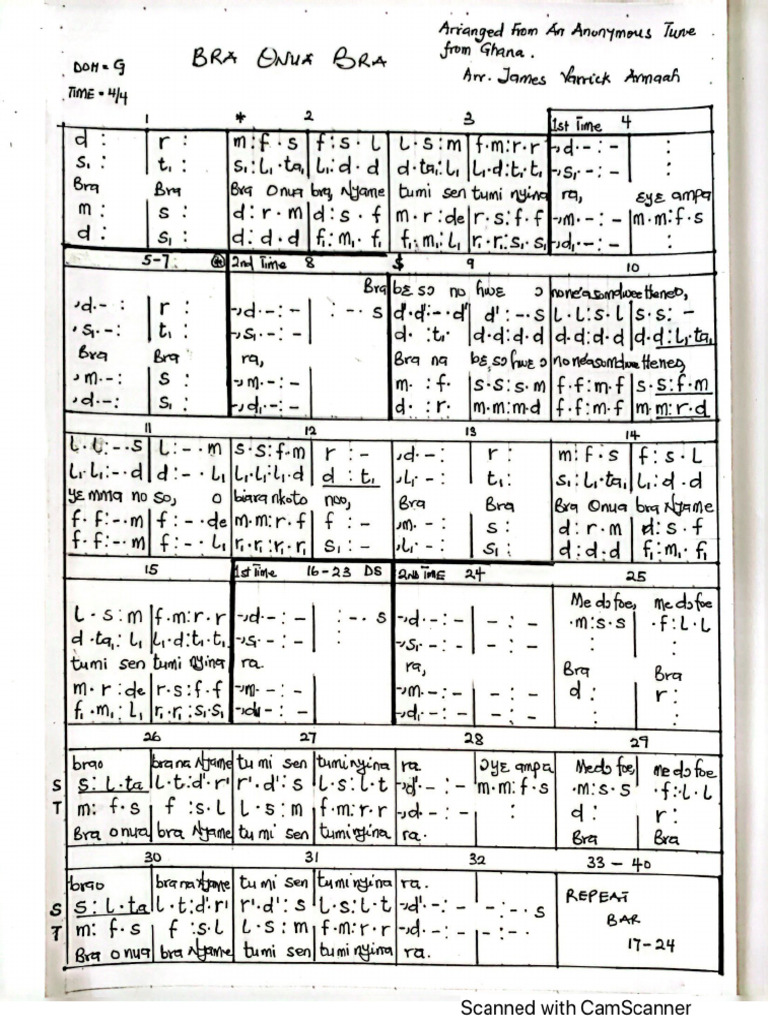 Arranged From An Anonymous Tune
from Ghana.
Arr. James Varrick Armaah
BRA ONUA BRA
DOH = G
TIME = 4/4
1 * 2 3 1st Time 4
d : | r : | m:f.s | f:s.L | L.s:m | f.m:r.r | -,d.-:- | :
s₁ : | t₁ : | s₁:L₁.ta₁ | L₁:d.d | d.ta₁:L₁ | L₁.d:t₁.t₁ | -,s₁.-:- | :
Bra Bra Bra Onua bra, Nyame tumi sen tumi nyina ra, ɛyɛ ampa
m : | s : | d:r.m | d:s.f | m.r:de | r.s:f.f | -,m.-:- | m.m:f.s
d : | s₁ : | d:d.d | f₁:m₁.f₁ | f₁.m₁:L₁ | r₁.r₁:s₁.s₁ | -,d₁.-:- | :
5-7 ⊛ 2nd Time 8 $ 9 10
Bra bɛ sɔ no hwɛ ɔ noneasomdwee Heneo,
,d.-: | r : | -,d.-:- | :-.s | d'.d':-.d' | d':-.s | L.L:s.L | s.s:-
,s₁.-: | t₁ : | -,s₁.-:- | | d. :t₁. | d.d:d.d | d.d:d.d | d.d:L₁.ta₁
Bra Bra ra, Bra na bɛ, sɔ hwɛ ɔ noneasomdwee Heneo,
,m.-: | s : | -,m.-:- | | m. :f. | s.s:s.m | f.f:m.f | s.s:f.m
,d.-: | s₁ : | -,d₁.-:- | | d. :r. | m.m:m.d | f.f:m.f | m.m:r.d
11 12 13 14
L.L:-.s | L:-.m | s.s:f.m | r :- | ,d.-: | r : | m:f.s | f:s.L
L₁.L₁:-.d | d:-.L₁ | L₁.L₁:L₁.d | d :t₁ | ,L₁.-: | t₁: | s₁:L₁.ta₁ | L₁:d.d
yɛ mma no so, o biara nkoto noo, Bra Bra Bra Onua bra Nyame
f.f:-.m | f:-.de | m.m:r.f | f :- | ,m.-: | s: | d:r.m | d:s.f
f.f:-.m | f:-.L₁ | r₁.r₁:r₁.r₁ | s₁:- | ,L₁.-: | s₁: | d:d.d | f₁:m₁.f₁
15 1st Time 16-23 DS 2nd TIME 24 25
Me dɔ foe, me dɔ foe
L.s:m | f.m:r.r | -,d.-:- | :-.s | -,d.-:- | -:- | .m:s.s | .f:L.L
d.ta₁:L₁ | L₁.d:t₁.t₁ | -,s₁.-:- | : | -,s₁.-:- | -:- | : | :
tumi sen tumi nyina ra. ra, Bra Bra
m.r:de | r.s:f.f | -,m.-:- | | -,m.-:- | -:- | d: | r:
f₁.m₁:L₁ | r₁.r₁:s₁.s₁ | -,d₁.-:- | | -,d₁.-:- | -:- | : | :
26 27 28 29
brao brana Nyame tumi sen tuminyina ra ɔyɛ ampa Medɔ foe, me dɔ foe
S s:L.ta | L.t:d'.r' | r'.d':s | L.s:L.t | -,d'.-:- | m.m:f.s | .m:s.s | .f:L.L
T m:f.s | f:s.L | L.s:m | f.m:r.r | -,d.-:- | : | d: | r:
Bra onua bra Nyame tumi sen tuminyina ra. Bra Bra
30 31 32 33 – 40
brao brana Nyame tumi sen tuminyina ra.
S s:L.ta | L.t:d'.r' | r'.d':s | L.s:L.t | -,d'.-:- | -:-.s
T m:f.s | f:s.L | L.s:m | f.m:r.r | -,d.-:- | -:-.
Bra onua bra Nyame tumi sen tuminyina ra.
REPEAT
BAR
17-24
Scanned with CamScanner